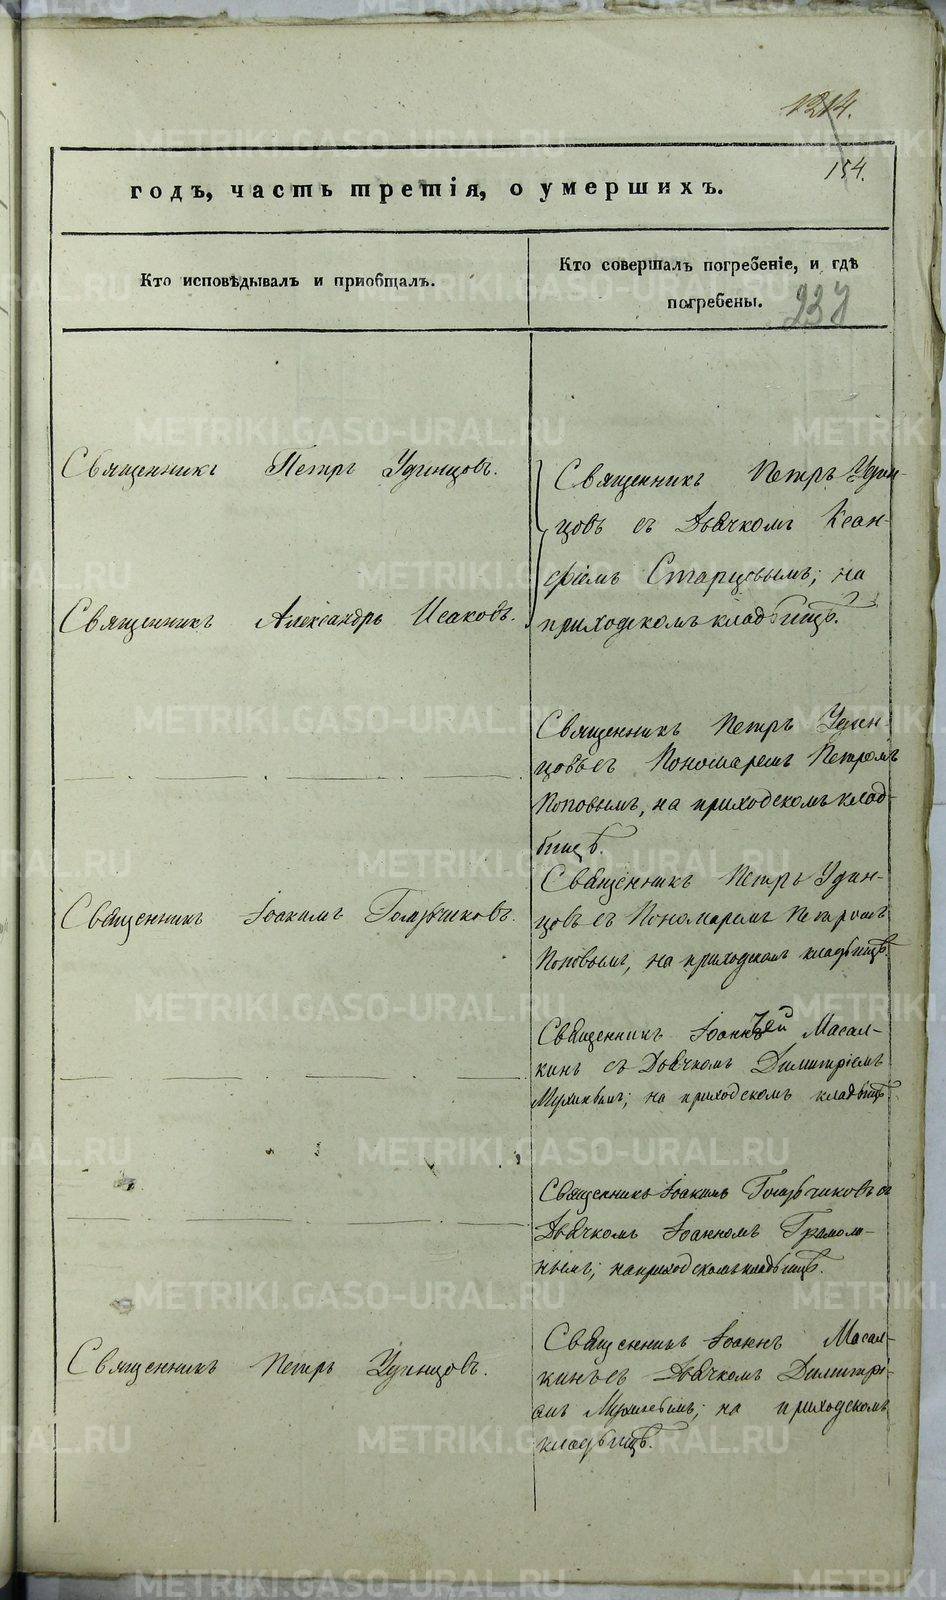 1214.
154.
годъ, часть третія, о умершихъ.
Кто исповѣдывалъ и пріобщалъ.
Кто совершалъ погребеніе, и гдѣ
погребены.
237
Священникъ Петръ Удинцовъ.
Священникъ Петръ Удин-
цовъ съ Дьячкомъ Ксан-
фіемъ Старцовымъ; на
приходскомъ кладбищѣ.
Священникъ Александръ Исаковъ.
Священникъ Петръ Удин-
цовъ съ Пономаремъ Петромъ
Поповымъ, на приходскомъ клад-
бищѣ.
Священникъ Іоакимъ Голубчиковъ.
Священникъ Петръ Удин-
цовъ съ Пономаремъ Петромъ
Поповымъ, на приходскомъ кладбищѣ.
Священникъ Іоаннъ Масал-
кинъ съ Дьячкомъ Димитріемъ
на приходскомъ кладбищѣ.
Священникъ Іоакимъ Голубчиковъ съ
Дьячкомъ Іоанномъ Грамоли-
нымъ; на приходскомъ кладбищѣ.
Священникъ Петръ Удинцовъ.
Священникъ Іоаннъ Масал-
кинъ съ Дьячкомъ Димитрі-
емъ на приходскомъ
кладбищѣ.
METRIKI.GASO-URAL.RU